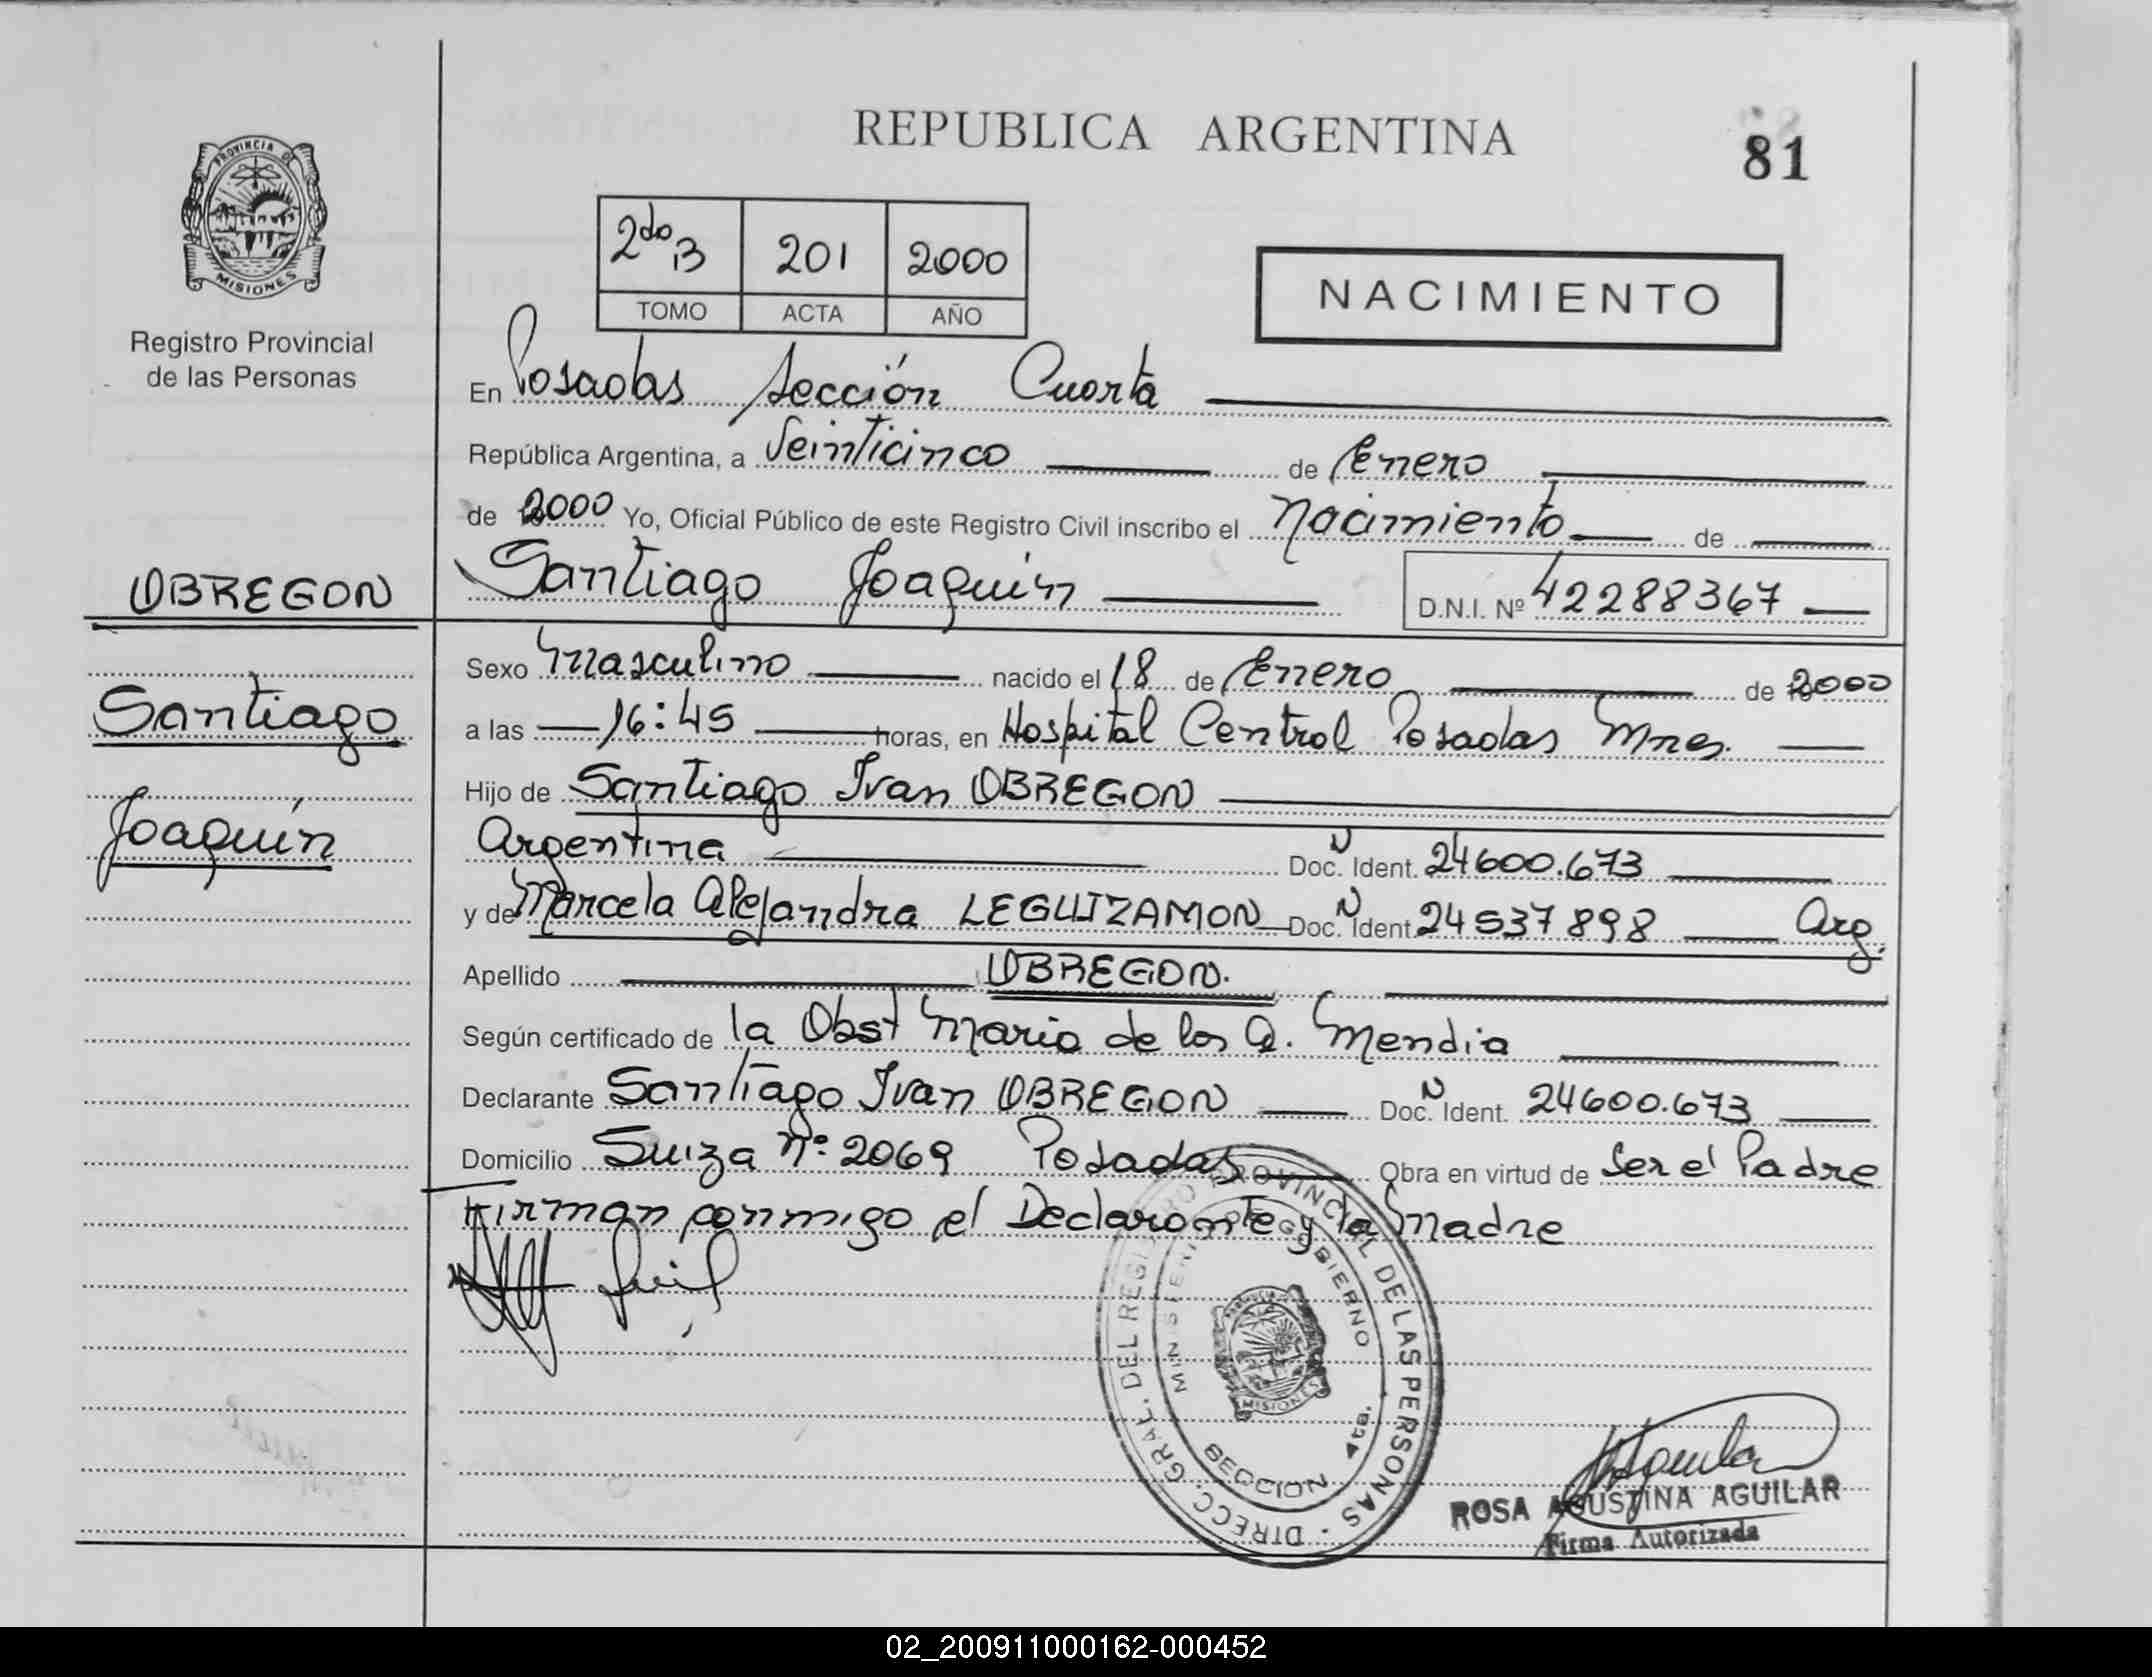 REPUBLICA ARGENTINA
81
PROVINCIA DE
MISIONES
Registro Provincial
de las Personas
2do B 201 2000
TOMO ACTA AÑO
NACIMIENTO
En Posadas Sección Cuarta
República Argentina, a Veinticinco de Enero
de 2000 Yo, Oficial Público de este Registro Civil inscribo el Nacimiento de
OBREGON
Santiago Joaquín
D.N.I. Nº 42288367
Sexo Masculino nacido el 18 de Enero de 2000
Santiago
a las 16:45 horas, en Hospital Central Posadas Mnes.
Hijo de Santiago Ivan OBREGON
Joaquín
Argentina Doc. N Ident. 24600.673
y de Marcela Alejandra LEGUIZAMON Doc. N Ident. 24537898 Arg.
Apellido OBREGON.
Según certificado de la Obst Maria de los A. Mendia
Declarante Santiago Ivan OBREGON Doc. N Ident. 24600.673
Domicilio Suiza Nº 2069 Posadas Obra en virtud de Ser el Padre
Firman conmigo el Declarante y la Madre
DIRECC. GRAL. DEL REGISTRO PROVINCIAL DE LAS PERSONAS
MINISTERIO DE GOBIERNO
MISIONES
SECCION 4ta.
ROSA AGUSTINA AGUILAR
Firma Autorizada
02_200911000162-000452